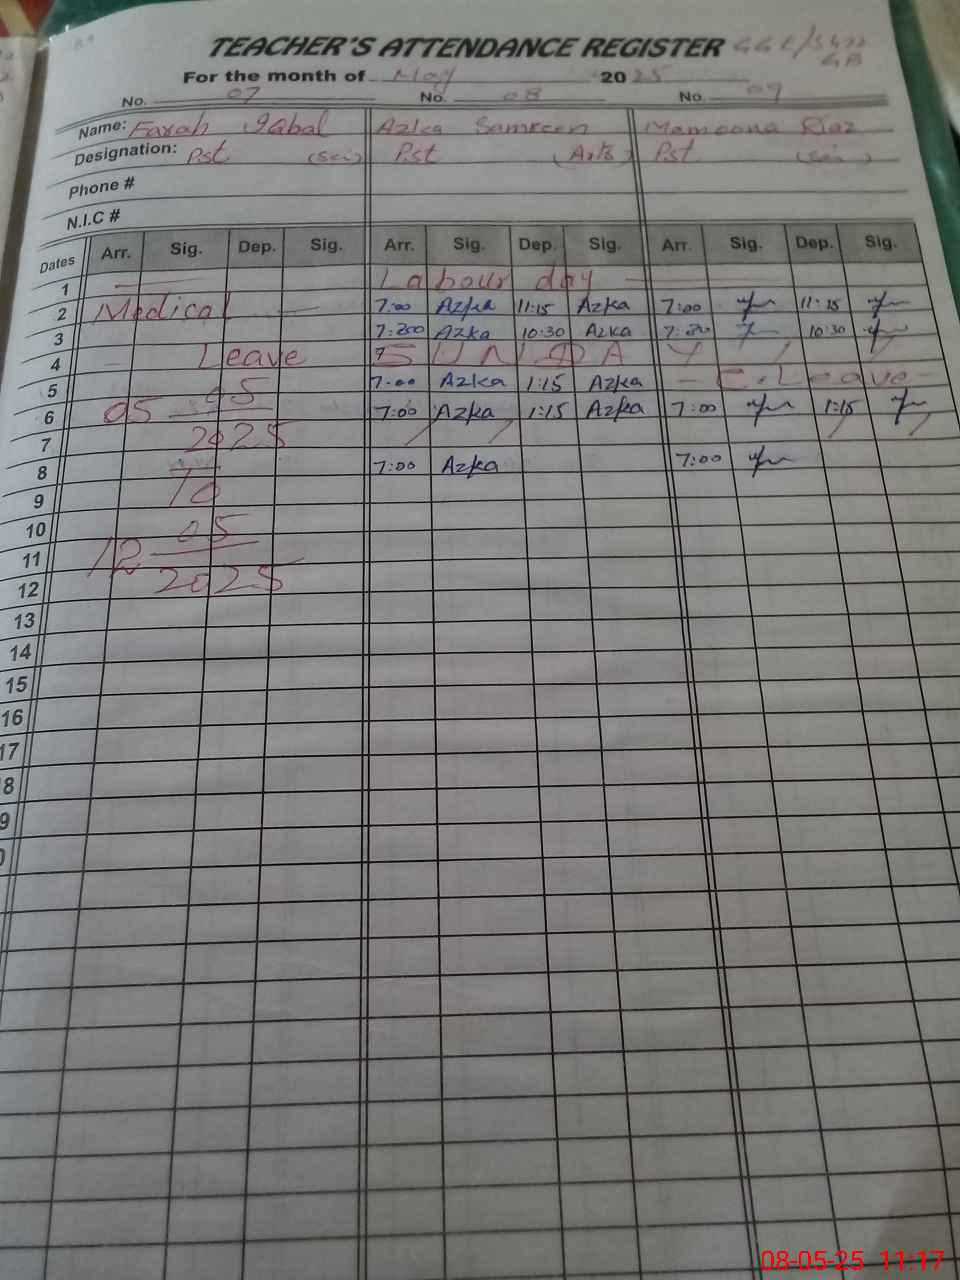 TEACHER'S ATTENDANCE REGISTER
For the month of May 2025
No. 07 No. 08 No. 09
Name: Farah Iqbal Azka Samreen Mamoona Riaz
Designation: Pst (Sci) Pst (Arts) Pst (Sci)
Phone #
N.I.C #
Dates Arr. Sig. Dep. Sig. Arr. Sig. Dep. Sig. Arr. Sig. Dep. Sig.
1 Labour day
2 Medical 7:00 Azka 11:15 Azka 7:00 11:15
3 Azka 10:30 Azka 10:30
4 Leave SUNDAY
5 05 7:00 Azka 1:15 Azka C. Leave
6 05 7:00 Azka 1:15 Azka 7:00 1:15
7 2025
8 To 7:00 Azka 7:00
9
10 05
11 12
12 2025
13
14
15
16
17
8
9
08-05-25 11:17